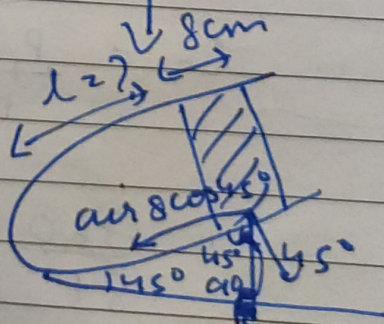 8cm
l = ?
air 8 cos 45°
45° 45°
45° ag